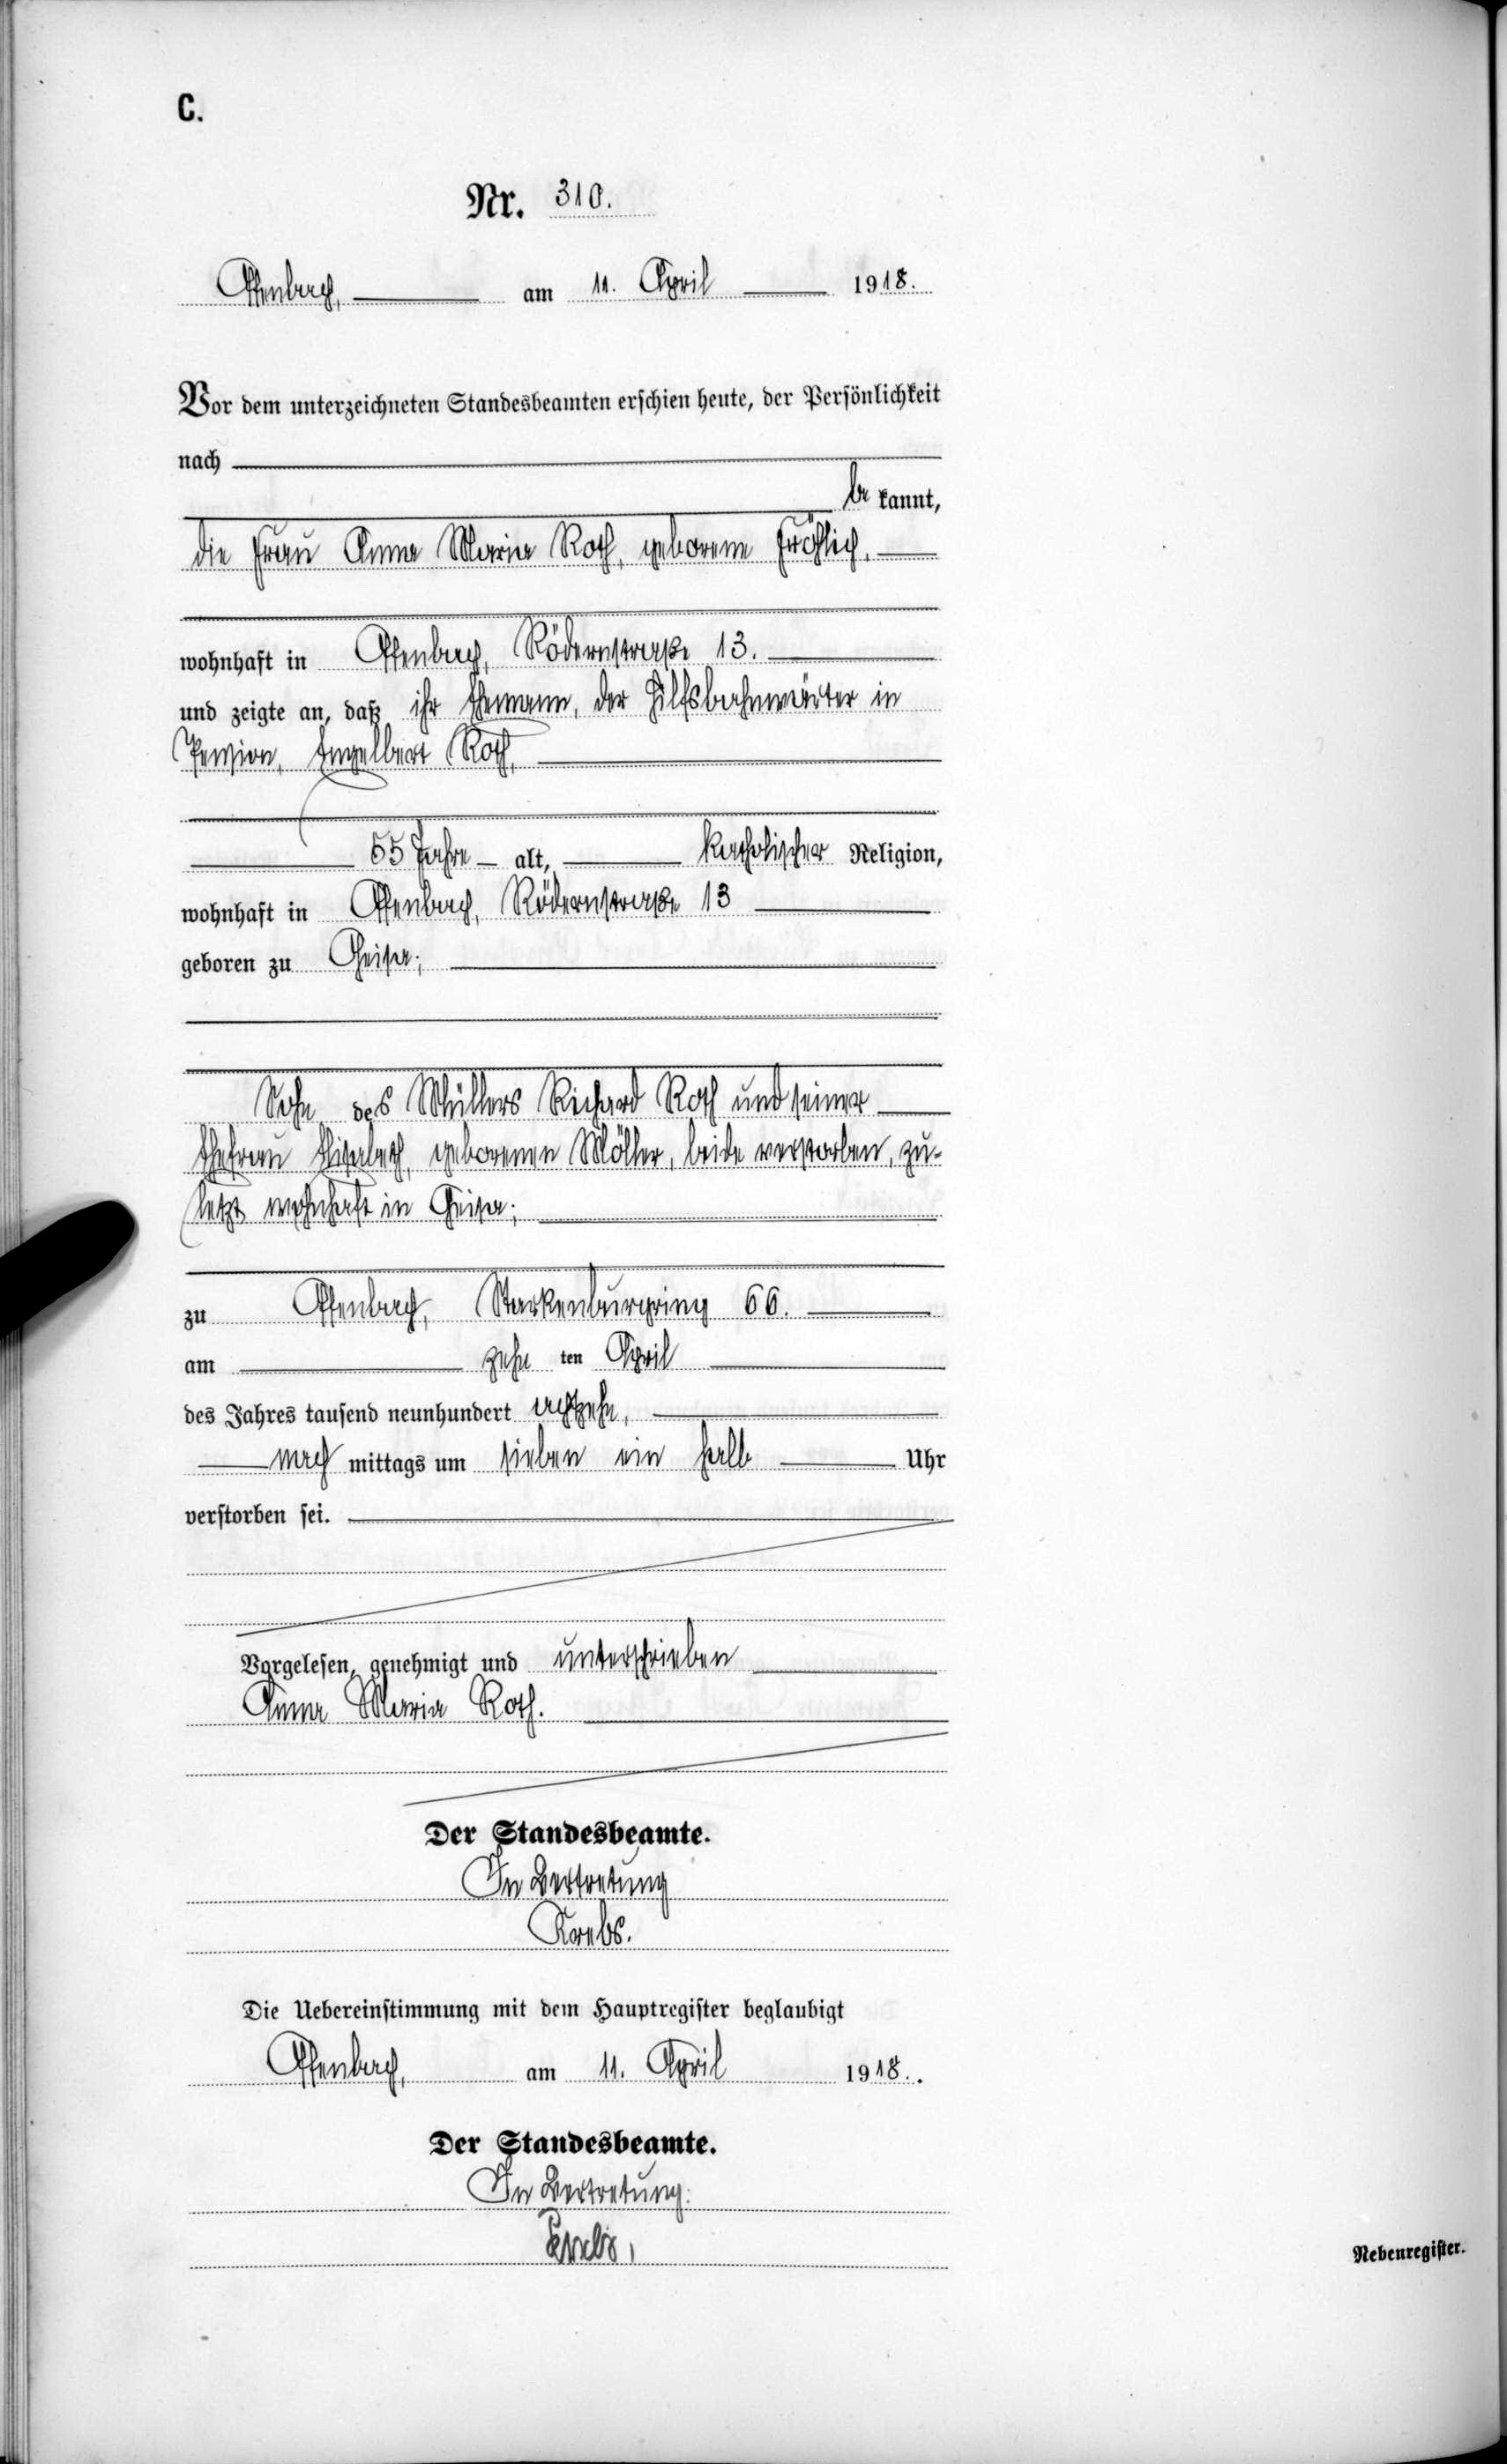 C.
Nr. 310.
Offenbach, am 11. April 1918.
Vor dem unterzeichneten Standesbeamten erschien heute, der Persönlichkeit
nach
be kannt,
die Frau Anna Maria Roth, geborene Fröhlich,
wohnhaft in Offenbach, Rödernstraße 13.
und zeigte an, daß ihr Ehemann, der Hilfsbahnwärter in
Pension, Engelbert Roth,
55 Jahre alt, katholischer Religion,
wohnhaft in Offenbach, Rödernstraße 13
geboren zu Geisa;
Sohn des Müllers Richard Roth und seiner
Ehefrau Elisabeth, geborenen Möller, beide verstorben, zu-
letzt wohnhaft in Geisa;
zu Offenbach, Starkenburgring 66.
am zehn ten April
des Jahres tausend neunhundert achtzehn,
nach mittags um sieben ein halb Uhr
verstorben sei.
Vorgelesen, genehmigt und unterschrieben
Anna Maria Roth.
Der Standesbeamte.
In Vertretung
Krebs.
Die Uebereinstimmung mit dem Hauptregister beglaubigt
Offenbach, am 11. April 1918.
Der Standesbeamte.
In Vertretung:
Krebs,
Nebenregister.